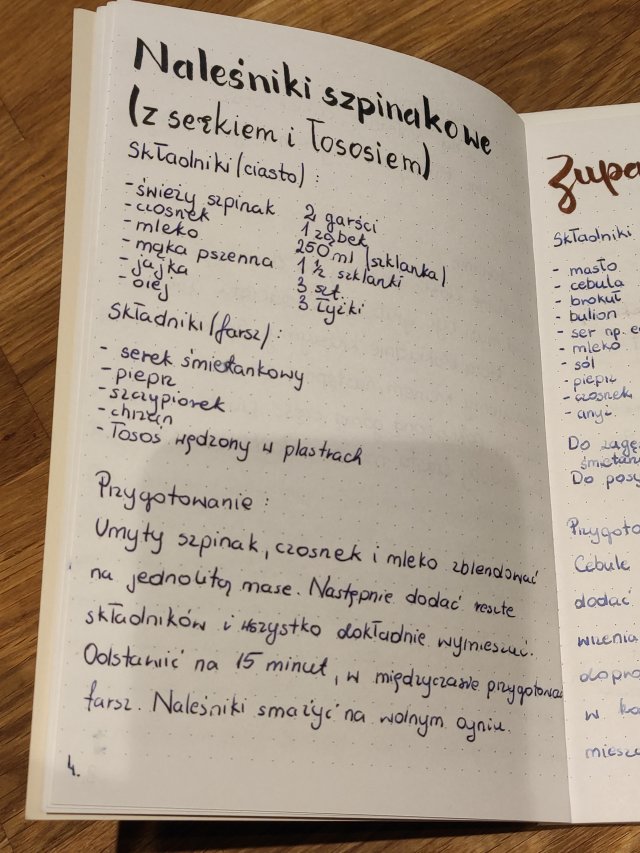 Naleśniki szpinakowe
(z serkiem i łososiem)
Składniki (ciasto) :
- świeży szpinak 2 garści
- czosnek 1 ząbek
- mleko 250 ml (szklanka)
- mąka pszenna 1 ½ szklanki
- jajka 3 szt.
- olej 3 łyżki
Składniki (farsz) :
- serek śmietankowy
- pieprz
- szczypiorek
- chrzan
- łosoś wędzony w plastrach
Przygotowanie :
Umyty szpinak, czosnek i mleko zblendować
na jednolitą mase. Następnie dodać resztę
składników i wszystko dokładnie wymieszać.
Odstawić na 15 minut, w międzyczasie przygotować
farsz. Naleśniki smażyć na wolnym ogniu.
4.
Zupa
Składniki
- masło
- cebula
- brokuł
- bulion
- ser np.
- mleko
- sól
- pieprz
- czosnek
Do
Do
Cebule
dodać
w